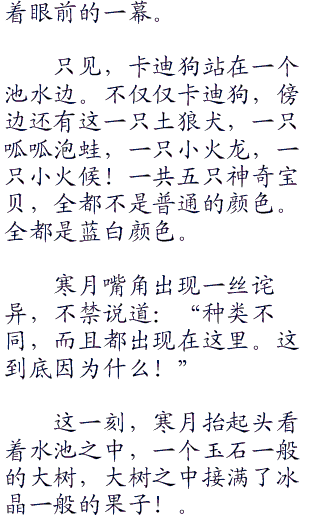 着眼前的一幕。
只见，卡迪狗站在一个
池水边。不仅仅卡迪狗，傍
边还有这一只土狼犬，一只
呱呱泡蛙，一只小火龙，一
只小火候！一共五只神奇宝
贝，全都不是普通的颜色。
全都是蓝白颜色。
寒月嘴角出现一丝诧
异，不禁说道：“种类不
同，而且都出现在这里。这
到底因为什么！”
这一刻，寒月抬起头看
着水池之中，一个玉石一般
的大树，大树之中接满了冰
晶一般的果子！。